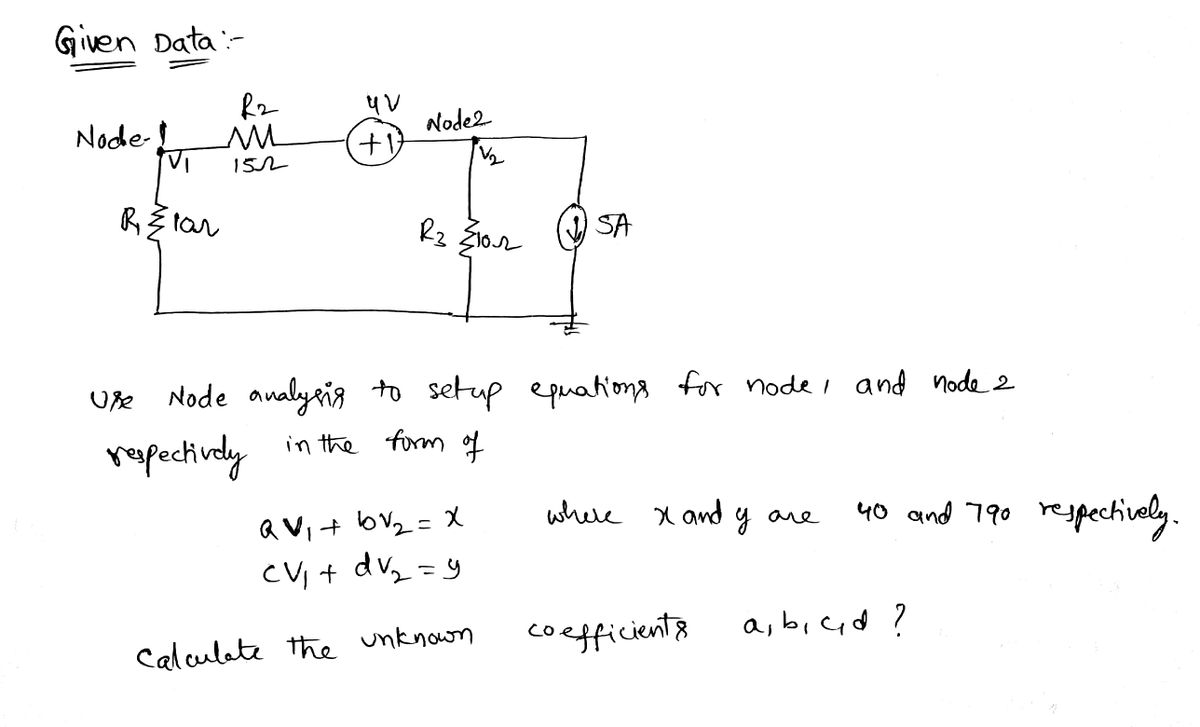 Given Data :-
R2 4V
Node-1 + Node2
V1 15Ω V2
R1 10Ω R3 10Ω 5A
Use Node analysis to setup equations for node 1 and node 2
respectively in the form of
aV1 + bV2 = x where x and y are 40 and 790 respectively.
cV1 + dV2 = y
Calculate the unknown coefficients a, b, c, d ?